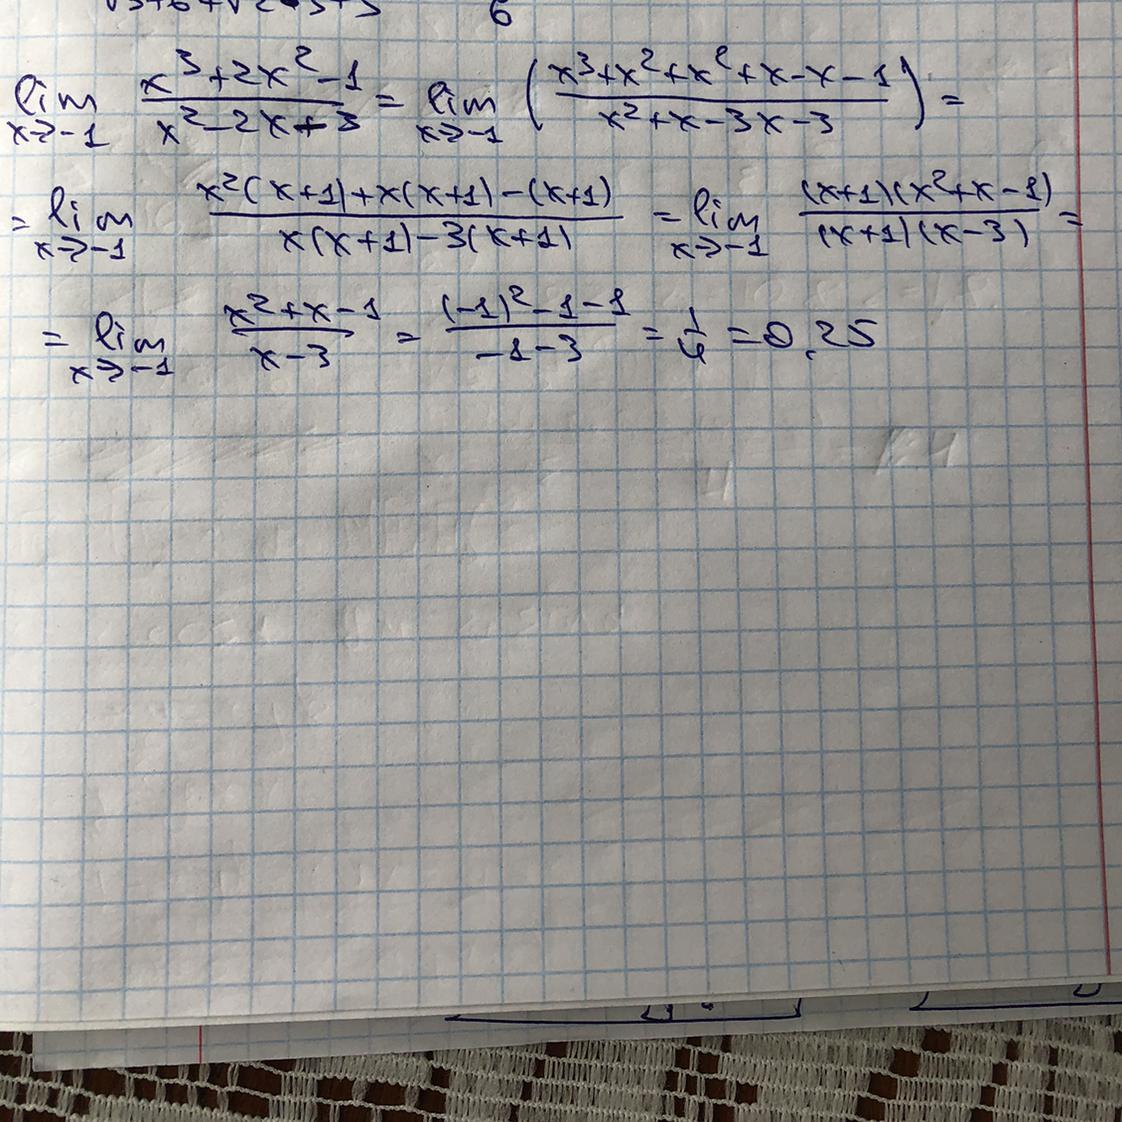 6
lim x→-1 (x³+2x²-1)/(x²-2x+3) = lim x→-1 ((x³+x²+x²+x-x-1)/(x²+x-3x-3)) =
= lim x→-1 (x²(x+1)+x(x+1)-(x+1))/(x(x+1)-3(x+1)) = lim x→-1 ((x+1)(x²+x-1))/((x+1)(x-3)) =
= lim x→-1 (x²+x-1)/(x-3) = ((-1)²-1-1)/(-1-3) = 1/4 = 0,25